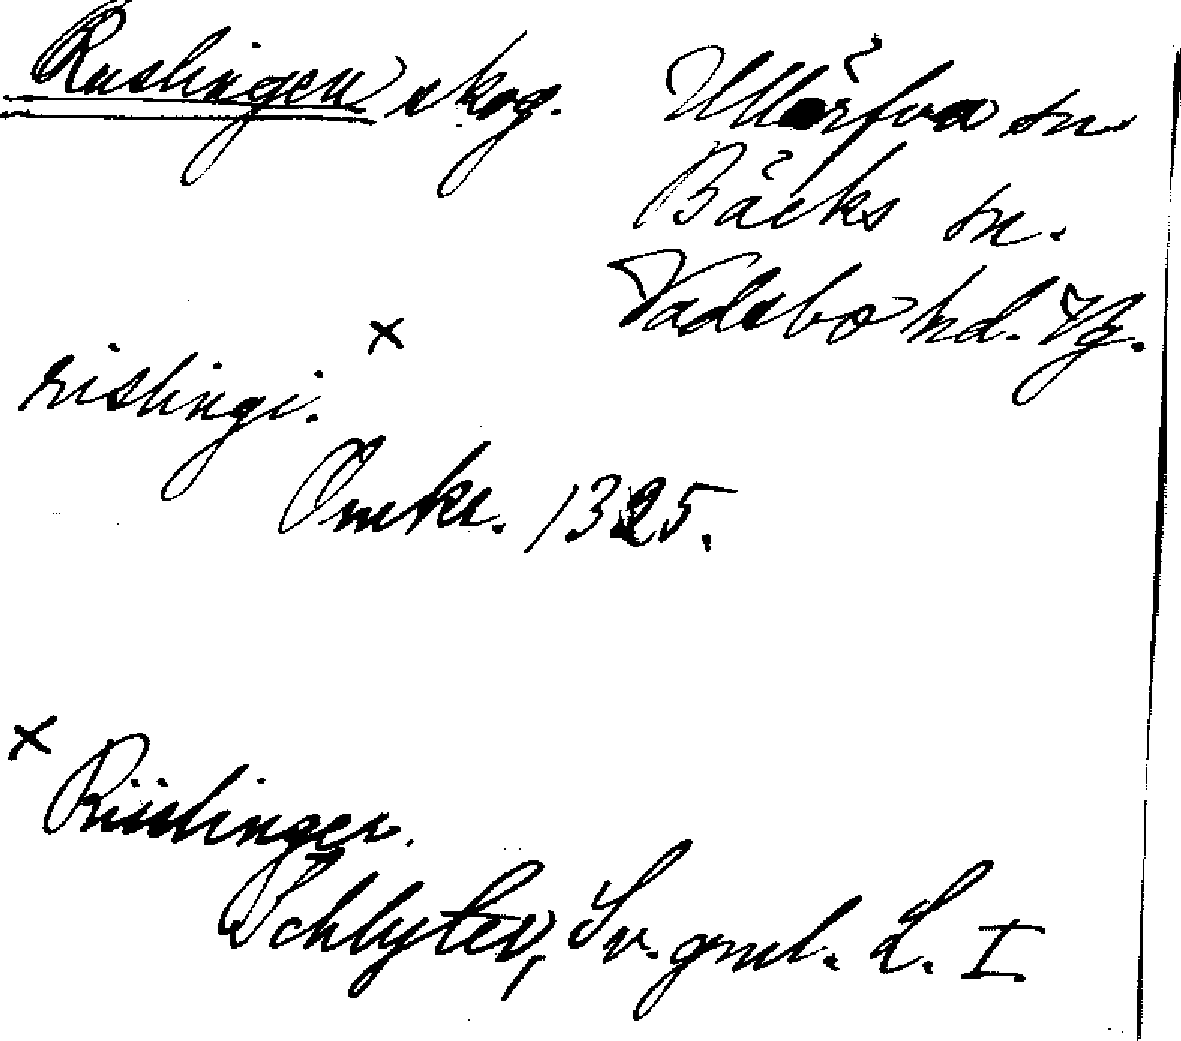 Ruslingen skog. Ullärfva sn
Bäcks sn.
Vadsbo hd. Vg.
rislingi. ×
Omkr. 1325.
× Riislinger.
Schlyter, Sv. gml. L. I.